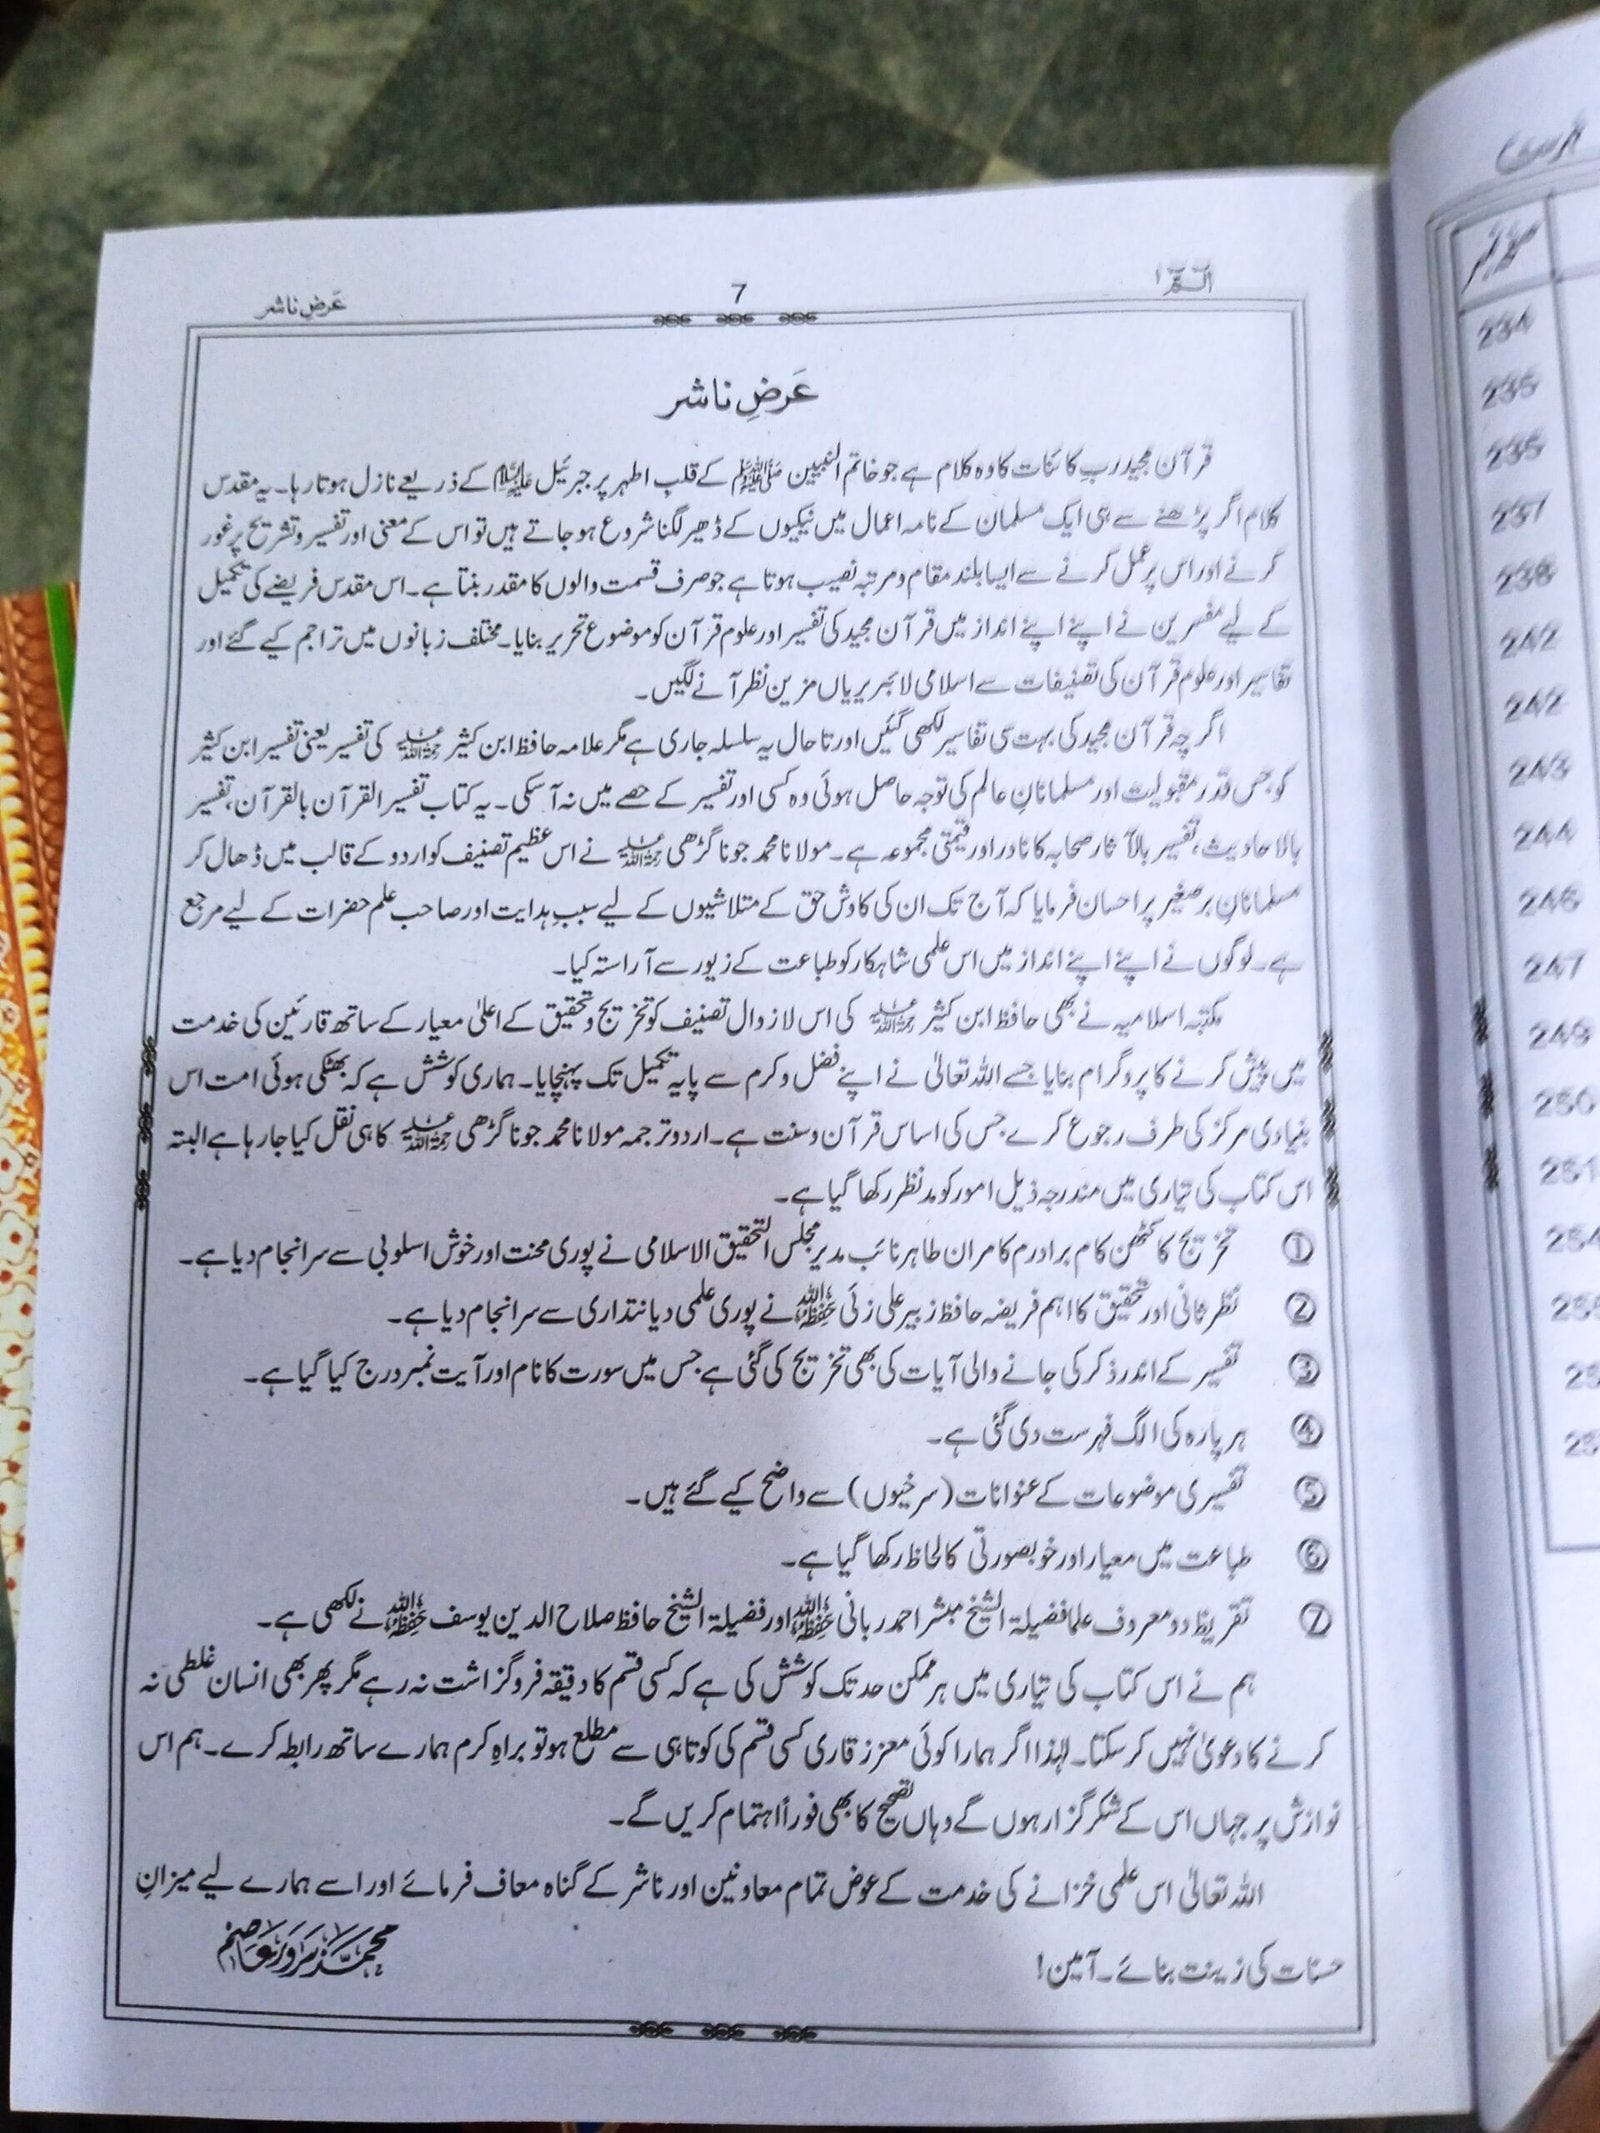 الٓـمّٓ ١
7
عَرضِ ناشر
عَرضِ ناشر
قرآن مجید رب کائنات کا وہ کلام ہے جو خاتم النبیین ﷺ کے قلب اطہر پر جبرئیل علیہ السلام کے ذریعے نازل ہوتا رہا۔ یہ مقدس
کلام اگر پڑھنے سے ہی ایک مسلمان کے نامہ اعمال میں نیکیوں کے ڈھیر لگنا شروع ہو جاتے ہیں تو اس کے معنی اور تفسیر و تشریح پر غور
کرنے اور اس پر عمل کرنے سے ایسا بلند مقام و مرتبہ نصیب ہوتا ہے جو صرف قسمت والوں کا مقدر بنتا ہے۔ اس مقدس فریضے کی تکمیل
کے لیے مفسرین نے اپنے اپنے انداز میں قرآن مجید کی تفسیر اور علوم قرآن کو موضوع تحریر بنایا۔ مختلف زبانوں میں تراجم کیے گئے اور
تفاسیر اور علوم قرآن کی تصنیفات سے اسلامی لائبریریاں مزین نظر آنے لگیں۔
اگرچہ قرآن مجید کی بہت سی تفاسیر لکھی گئیں اور تا حال یہ سلسلہ جاری ہے مگر علامہ حافظ ابن کثیر رحمۃ اللہ علیہ کی تفسیر یعنی تفسیر ابن کثیر
کو جس قدر مقبولیت اور مسلمانانِ عالم کی توجہ حاصل ہوئی وہ کسی اور تفسیر کے حصے میں نہ آسکی۔ یہ کتاب تفسیر القرآن بالقرآن، تفسیر
بالاحادیث، تفسیر بالآثار صحابہ کا نادر اور قیمتی مجموعہ ہے۔ مولانا محمد جونا گڑھی رحمۃ اللہ علیہ نے اس عظیم تصنیف کو اردو کے قالب میں ڈھال کر
مسلمانانِ برصغیر پر احسان فرمایا کہ آج تک ان کی کاوش حق کے متلاشیوں کے لیے سببِ ہدایت اور صاحب علم حضرات کے لیے مرجع
ہے۔ لوگوں نے اپنے اپنے انداز میں اس علمی شاہکار کو طباعت کے زیور سے آراستہ کیا۔
مکتبہ اسلامیہ نے بھی حافظ ابن کثیر رحمۃ اللہ علیہ کی اس لازوال تصنیف کو تخریج و تحقیق کے اعلیٰ معیار کے ساتھ قارئین کی خدمت
میں پیش کرنے کا پروگرام بنایا جسے اللہ تعالیٰ نے اپنے فضل و کرم سے پایہ تکمیل تک پہنچایا۔ ہماری کوشش ہے کہ بھٹکی ہوئی امت اس
بنیادی مرکز کی طرف رجوع کرے جس کی اساس قرآن و سنت ہے۔ اردو ترجمہ مولانا محمد جونا گڑھی رحمۃ اللہ علیہ کا ہی نقل کیا جا رہا ہے البتہ
اس کتاب کی تیاری میں مندرجہ ذیل امور کو مدنظر رکھا گیا ہے۔
① تخریج کا کٹھن کام برادرم کامران طاہر نائب مدیر مجلس التحقیق الاسلامی نے پوری محنت اور خوش اسلوبی سے سرانجام دیا ہے۔
② نظر ثانی اور تحقیق کا اہم فریضہ حافظ زبیر علی زئی حفظہ اللہ نے پوری علمی دیانتداری سے سرانجام دیا ہے۔
③ تفسیر کے اندر ذکر کی جانے والی آیات کی بھی تخریج کی گئی ہے جس میں سورت کا نام اور آیت نمبر درج کیا گیا ہے۔
④ ہر پارہ کی الگ فہرست دی گئی ہے۔
⑤ تفسیری موضوعات کے عنوانات (سرخیوں) سے واضح کیے گئے ہیں۔
⑥ طباعت میں معیار اور خوبصورتی کا لحاظ رکھا گیا ہے۔
⑦ تقریظ دو معروف علما فضیلۃ الشیخ مبشر احمد ربانی حفظہ اللہ اور فضیلۃ الشیخ حافظ صلاح الدین یوسف حفظہ اللہ نے لکھی ہے۔
ہم نے اس کتاب کی تیاری میں ہر ممکن حد تک کوشش کی ہے کہ کسی قسم کا دقیقہ فروگزاشت نہ رہے مگر پھر بھی انسان غلطی نہ
کرنے کا دعویٰ نہیں کر سکتا۔ لہٰذا اگر ہمارا کوئی معزز قاری کسی قسم کی کوتاہی سے مطلع ہو تو براہِ کرم ہمارے ساتھ رابطہ کرے۔ ہم اس
نوازش پر جہاں اس کے شکر گزار ہوں گے وہاں تصحیح کا بھی فوراً اہتمام کریں گے۔
اللہ تعالیٰ اس علمی خزانے کی خدمت کے عوض تمام معاونین اور ناشر کے گناہ معاف فرمائے اور اسے ہمارے لیے میزانِ
حسنات کی زینت بنائے۔ آمین!
محمد سرور عاصم
234
235
235
237
238
242
242
243
244
246
247
249
250
251
254